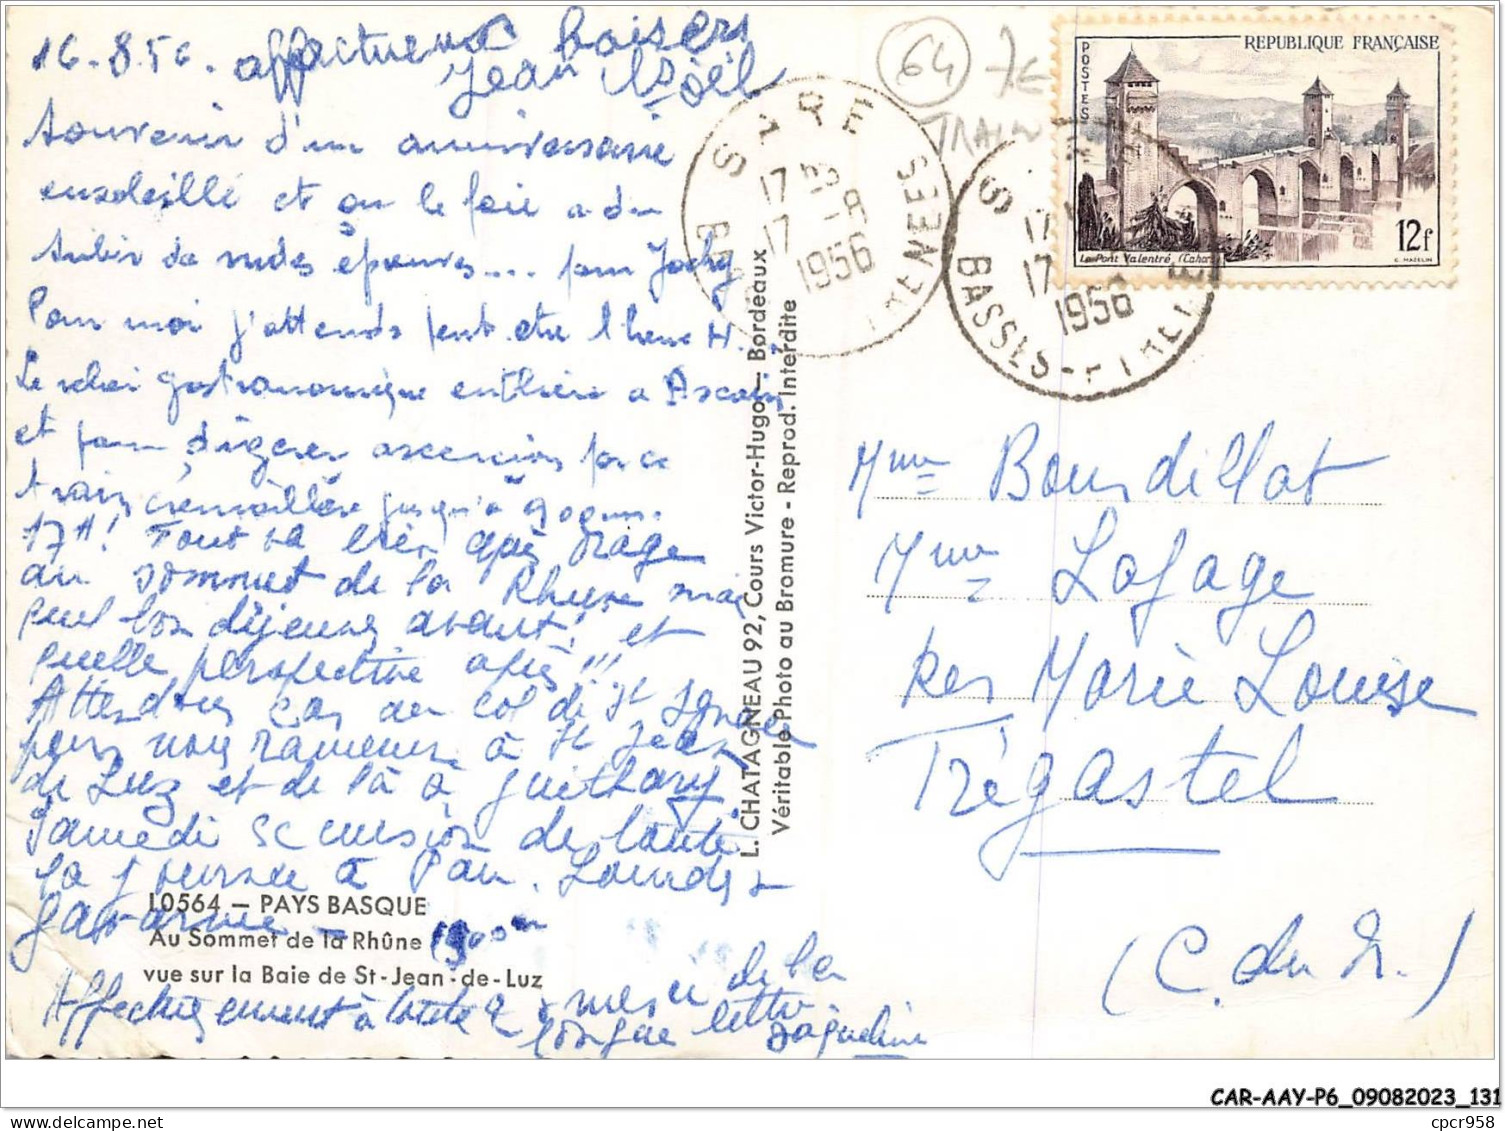 16-8-56. affectueux baisers
Jean Noël
Souvenir d'un anniversaire
ensoleillé et où le foie a du
subir de rudes épreuves... pour Jacky
Pour moi j'attends peut-être l'heure H...
Le relais gastronomique entière a Ascain
et pour digérer ascension par ce
train crémaillère jusqu'à 900m.
17H! Tout va bien après orage
au sommet de la Rhune mais
quel bon déjeuner avant! et
quelle perspective après!!!
Attendons car au col de St Ignace
pour nous ramener à St Jean
de Luz et de là à Guéthary
Samedi excursion de toute
la journée à Pau. Lourdes
Gavarnie -
10564 – PAYS BASQUE
Au Sommet de la Rhûne 900m
vue sur la Baie de St-Jean-de-Luz
Affectueusement à toute 2 & merci de la
longue lettre
Jaqueline
L. CHATAGNEAU 92, Cours Victor-Hugo – Bordeaux
Véritable Photo au Bromure - Reprod. Interdite
64
TRAIN
SARE
17 H
17 -8
1956
BASSES-PYRENEES
S
17
17
1956
BASSES-PYRENEES
REPUBLIQUE FRANÇAISE
POSTES
Le Pont Valentré, (Cahors)
12f
C. MAZELIN
Mme Bourdillat
Mme Lafage
Ker Marie Louise
Trégastel
(C. du N.)
CAR-AAY-P6_09082023_131
cpcr958